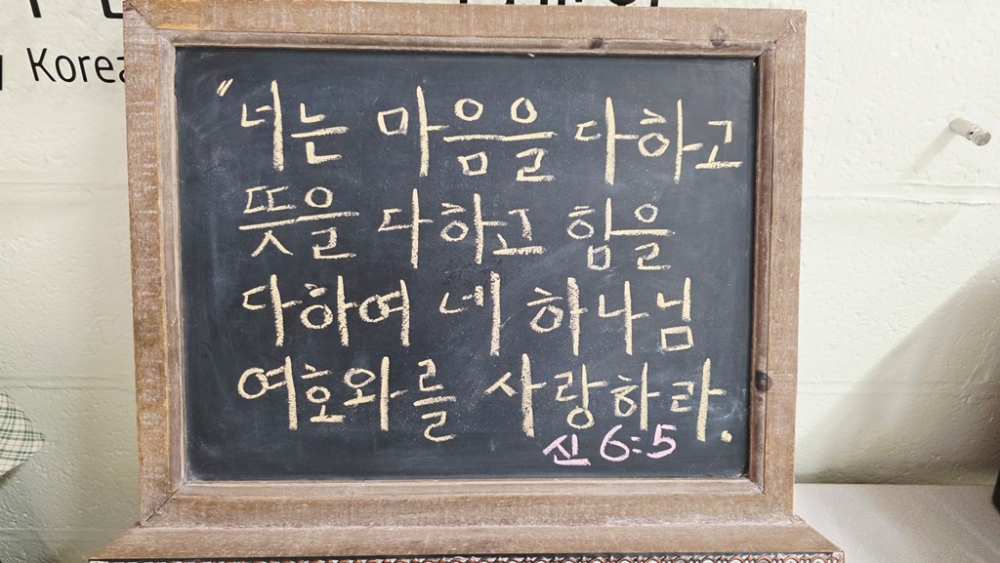 Korea
"너는 마음을 다하고
뜻을 다하고 힘을
다하여 네 하나님
여호와를 사랑하라.
신 6:5